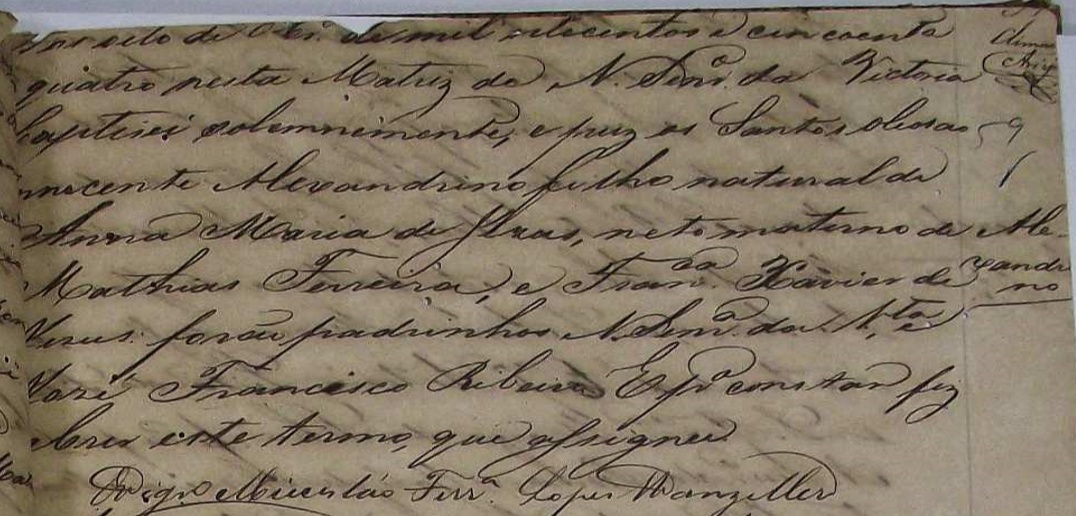 oito de de mil oitocentos e cincoenta
quatro nesta Matriz de N. Senrª da Victoria
baptisei solemnemente, e puz os Santos oleos ao
nnocente Alexandrino filho natural de
Anna Maria de Jesus, neto materno de
Mathias Ferreira, e Franca Xavier de
Jesus: forão padrinhos N. Senrª da Vta e
José Francisco Ribeiro E pª constar fiz
abrir este termo, que assignei
Vigrº Miecesláo Ferrª Lopes Wanzeller
Ale-
xandri
no